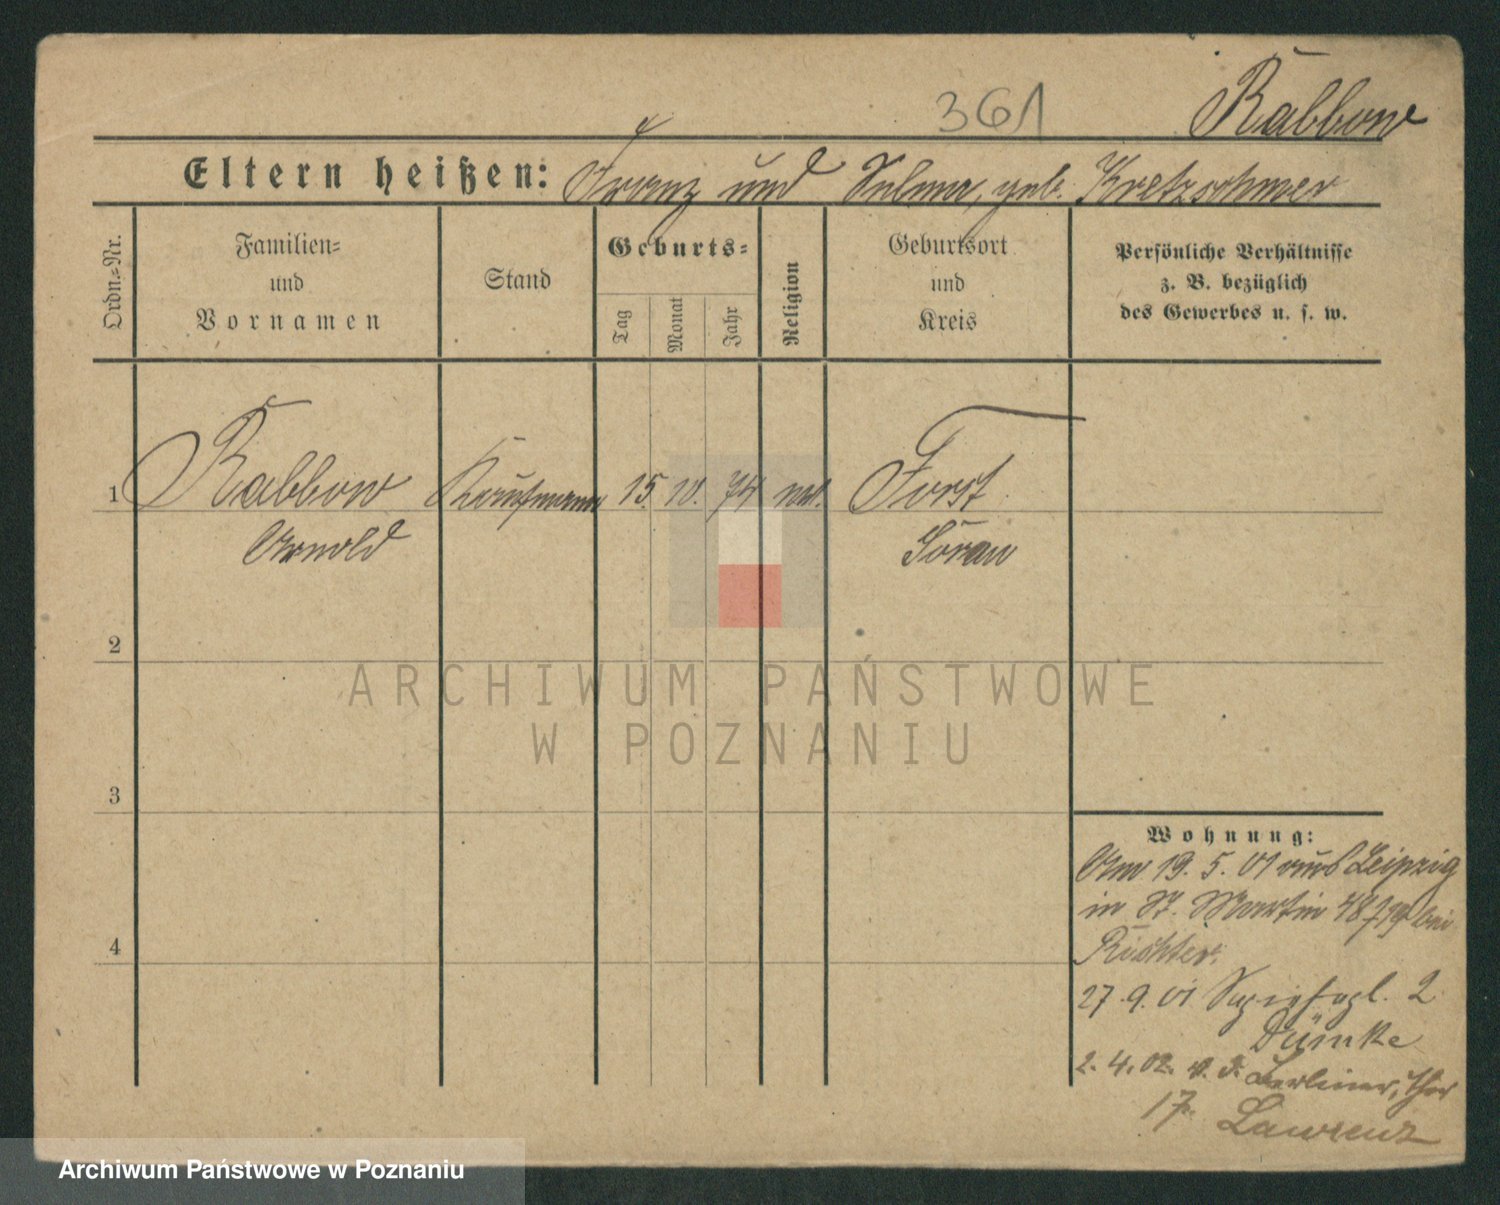 361
Rabbow
Eltern heißen: Franz und Selma, geb. Kretzschmer
Ordn.=Nr.
Familien= und Vornamen
Stand
Geburts=
Tag
Monat
Jahr
Religion
Geburtsort und Kreis
Persönliche Verhältnisse
z. B. bezüglich
des Gewerbes u. s. w.
1 Rabbow Kaufmann 15. 10. 74 Forst
Arnold Sorau
2
ARCHIWUM PAŃSTWOWE
W POZNANIU
3
4
Wohnung:
Am 19. 5. 01 aus Leipzig
in St. Martin 48 bei
Richter.
27. 9. 01 2
Dümke
2. 4. 02. v. d. Berliner Thor
17 Lawrenz
Archiwum Państwowe w Poznaniu